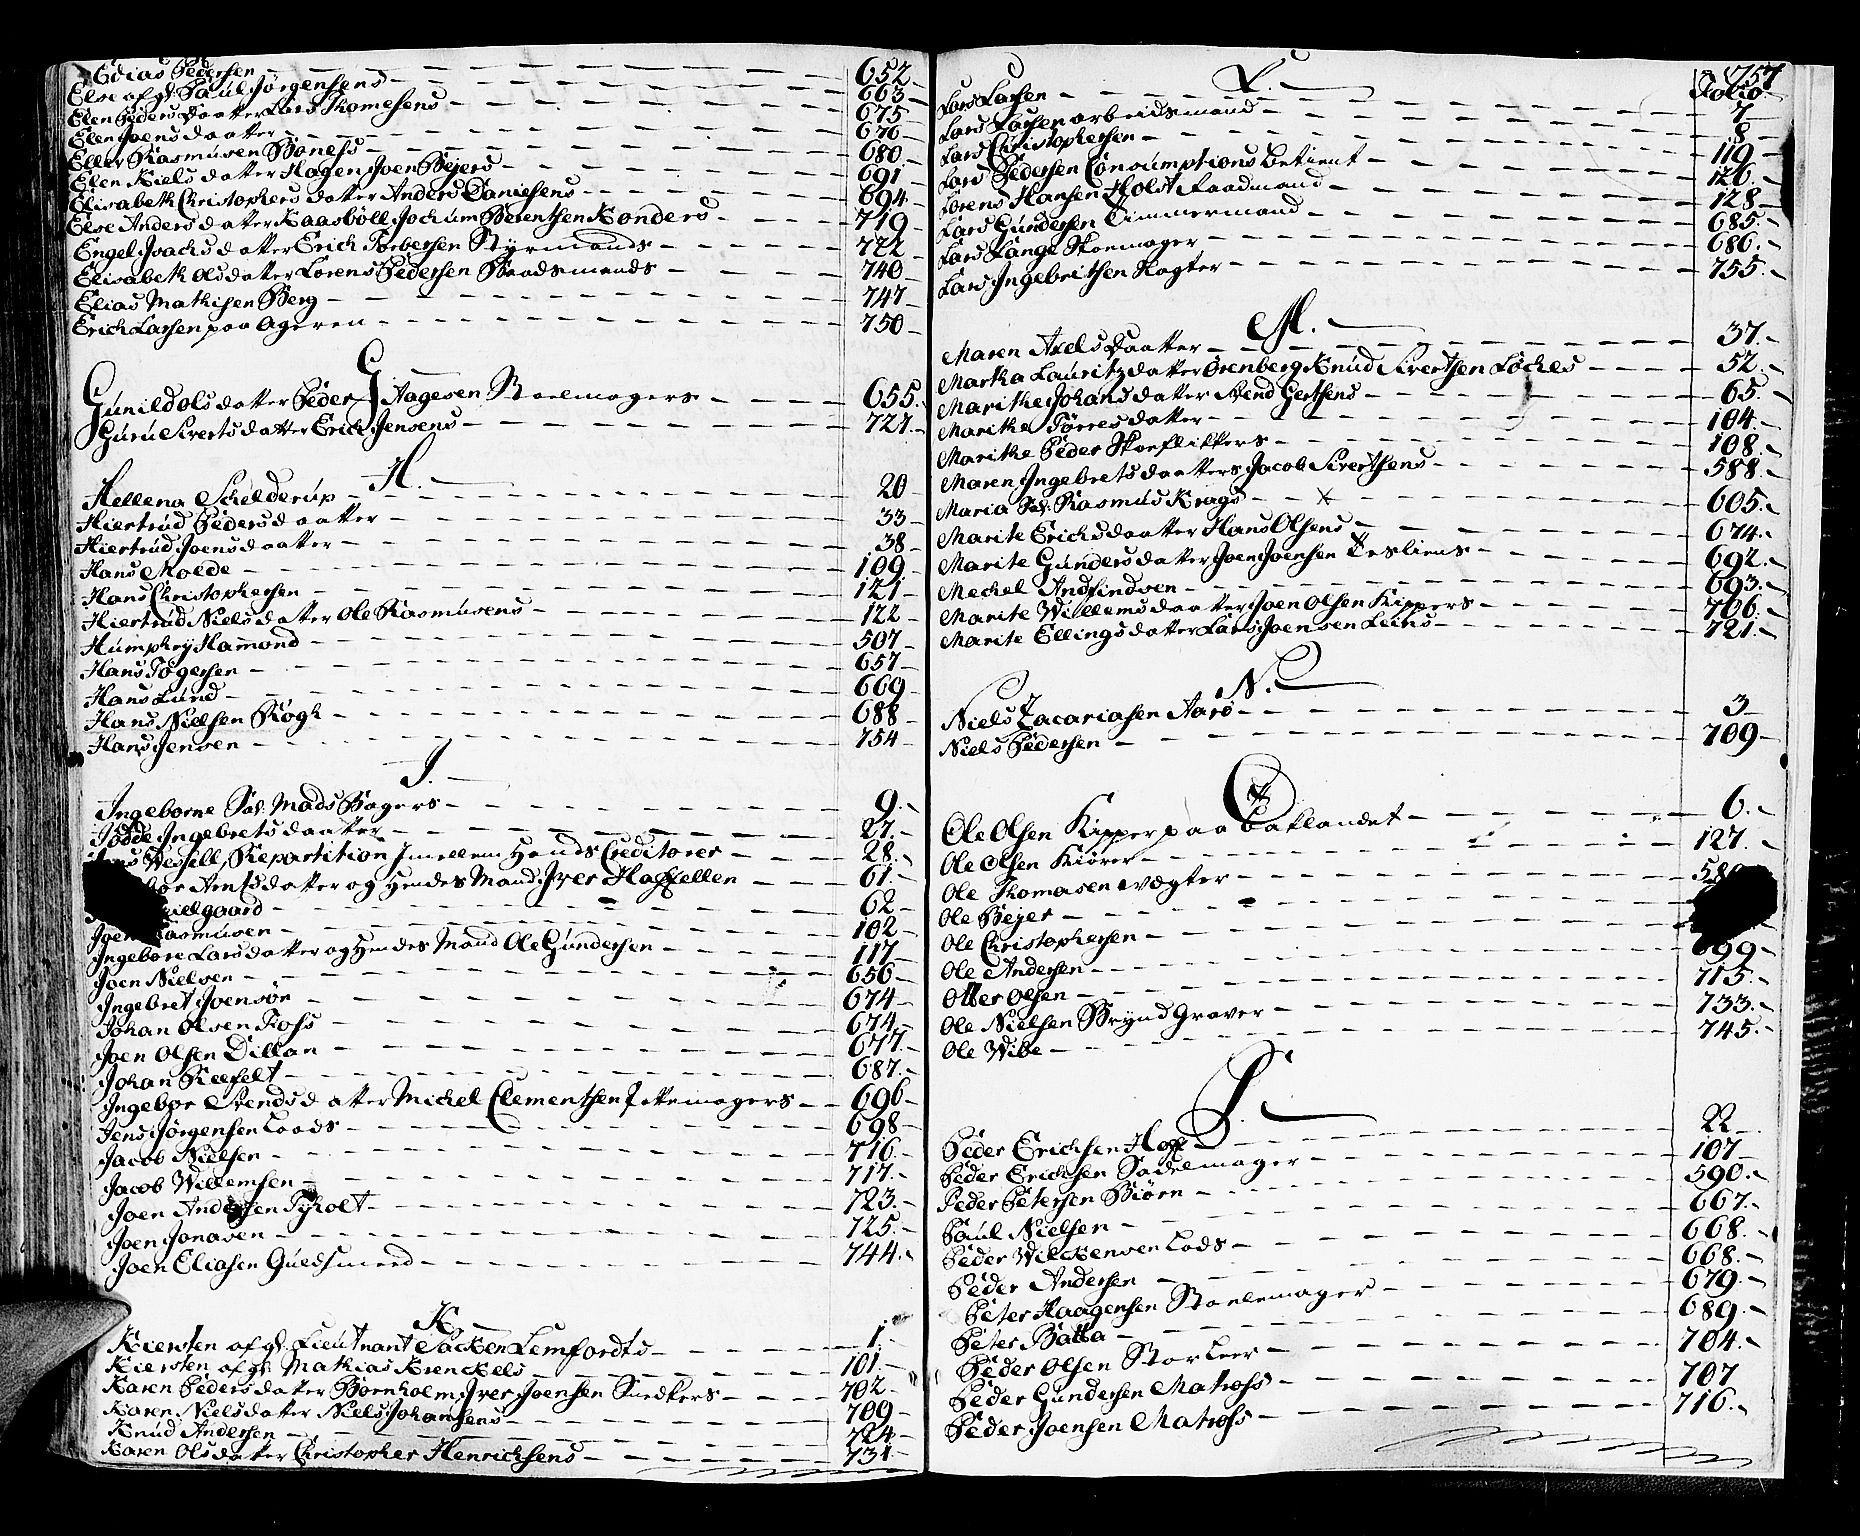 Edias Pedersen 652
Else afg: Paul Jörgensens 663
Elen Peders Daatter Lars Thomesens 675
Elen Joens daatter 676
Eller Rasmusen Boness 680
Elen Niels datter Hagen Joen Bejers 691
Elisabeth Christophers datter Anders Danielsens 694
Else Anders datter Kaasböll Jochum Berentsen Konders 719
Engel Joachs datter Erich Torbersen Styrmands 722
Elisabeth Ols datter Lorens Pedersen Baadsmands 740
Elias Mathisen Berg 747
Erich Larsen paa Ageren 750
G
Gunild Ols datter Peder Aagesen Stoelmagers 655
Guru Siverts datter Erich Jensens 727
H.
Hellena Schelderup 20
Hiertrud Peders daatter 33
Hiertrud Joens daatter 38
Hans Molde 109
Hans Christophersen 121
Hiertrud Niels datter Ole Rasmusens 122
Humphry Hamond 507
Hans Tögersen 657
Hans Lund 669
Hans Nielsen Kogh 688
Hans Jensen 754
I.
Ingeborne Sal. Mads Bagers 9
Jödde Ingebrets daatter 27
Wessell, Repartition Imellem Hands Creditorer 28
Arntsdatter og Hendes Mand Iver Haffellen 61
62
Joen Rasmusen 102
Ingebore Lars datter og Hendes Mand Ole Gundersen 117
Joen Nielsen 656
Ingebret Joensön 674
Johan Olsen Foss 674
Joen Olsen Dillan 677
Johan Reefelt 687
Ingebor Svends datter Michel Clementsen Pottemagers 696
Jens Jörgensen Loods 698
Jacob Nielsen 716
Jacob Willemsen 717
Joen Andersen Tyholt 723
Joen Jonasen 725
Joen Eliasen Guldsmed 744
K
Kiersten afg: Lieutnant Sacken Lemfordts 1
Kiersten afg: Mathias Krenckels 101
Karen Peders datter Bornholm Iver Joensen Snedkers 702
Karen Niels datter Niels Johansens 709
Knud Andersen 724
Karen Ols datter Christopher Henrichsens 731
757
L. Folio
Lars Larsen 7
Lars Larsen arbeidsmand 8
Lars Christophersen 119
Lars Pedersen Consumptions Betient 126
Lorens Hansen Holst Raadmand 128
Lars Gundersen Timmermand 685
Lars Lange Skoemager 686
Lars Ingebritsen Kogter 755
M.
Maren Axels Daatter 37
Martha Lauritz datter Orenberg Knud Sivertsen Löches 52
Marithe Johans datter Svend Gertsens 65
Marithe Törres datter 104
Marithe Peder Skoeflikkers 108
Maren Ingebrets daatters Jacob Sivertsens 588
Maria Sal. Rasmus Krags 605
Marite Erichs daatter Hans Olsens 674
Marite Gunders datter Joen Joensen Tesliens 692
Mechel Andfindsen 693
Marite Willems daatter Joen Olsen Kippers 706
Marite Ellings datter Lars Joensen Leins 721
N.
Niels Zacariasen Aarö 3
Niels Pedersen 709
O
Ole Olsen Kipper paa Baklandet 6
Ole Olsen Kiörer 127
Ole Thomasen vægter
Ole Bejer
Ole Christophersen 699
Ole Andersen 715
Otter Olsen 733
Ole Nielsen Brynd Graver 745
Ole Wibe
P.
Peder Erichsen Hoff 22
Peder Erichsen Sadelmager 107
Peder Petersen Biörn 590
Paul Nielsen 667
Peder Wilckensen Lods 668
Peder Andersen 668
Peter Haagensen Stoelemager 679
Peter Batta 689
Peder Olsen Storleer 704
Peder Gundersen Matross 707
Peder Joensen Matross 716